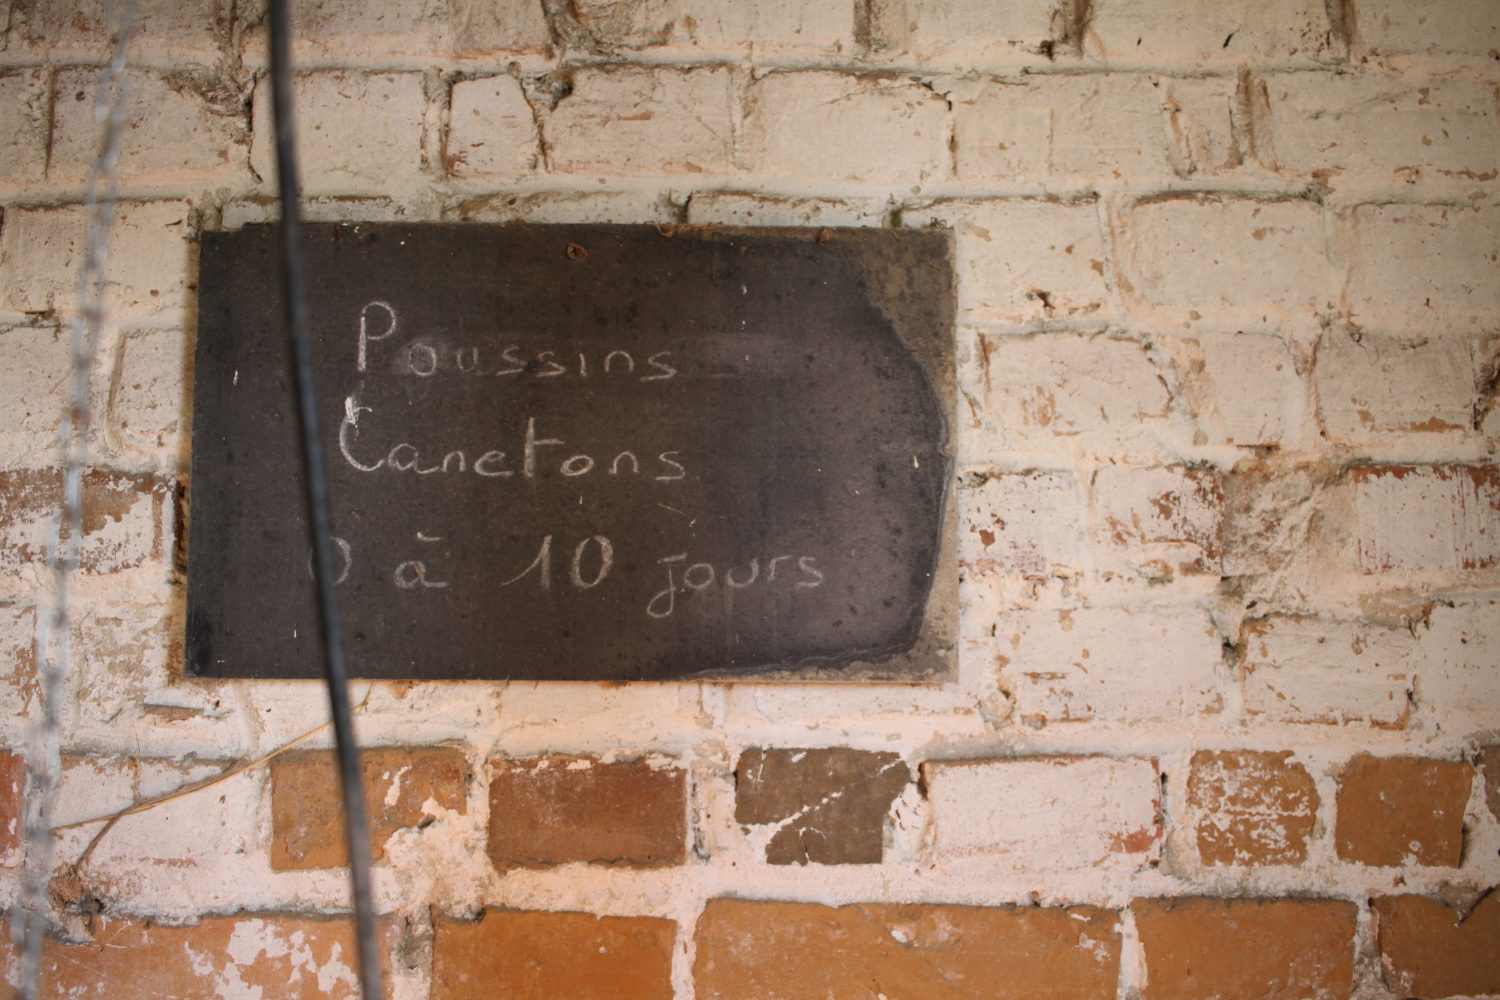 Poussins
Canetons
0 à 10 jours